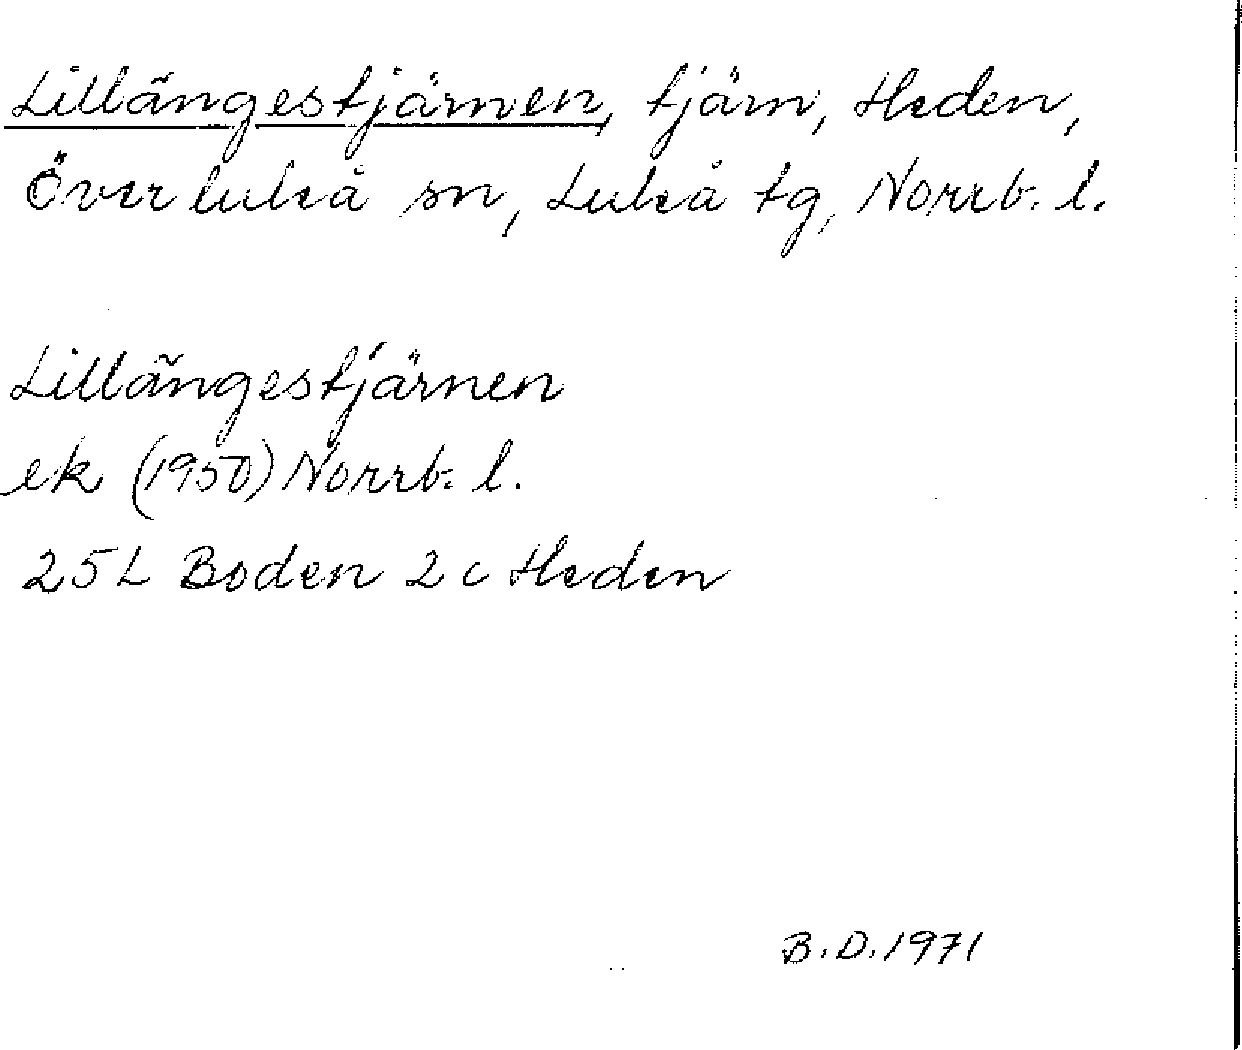 Lillängestjärnen, tjärn, Heden,
Överluleå sn, Luleå tg, Norrb. l.
Lillängestjärnen
ek (1950) Norrb. l.
25L Boden 2c Heden
B.D.1971